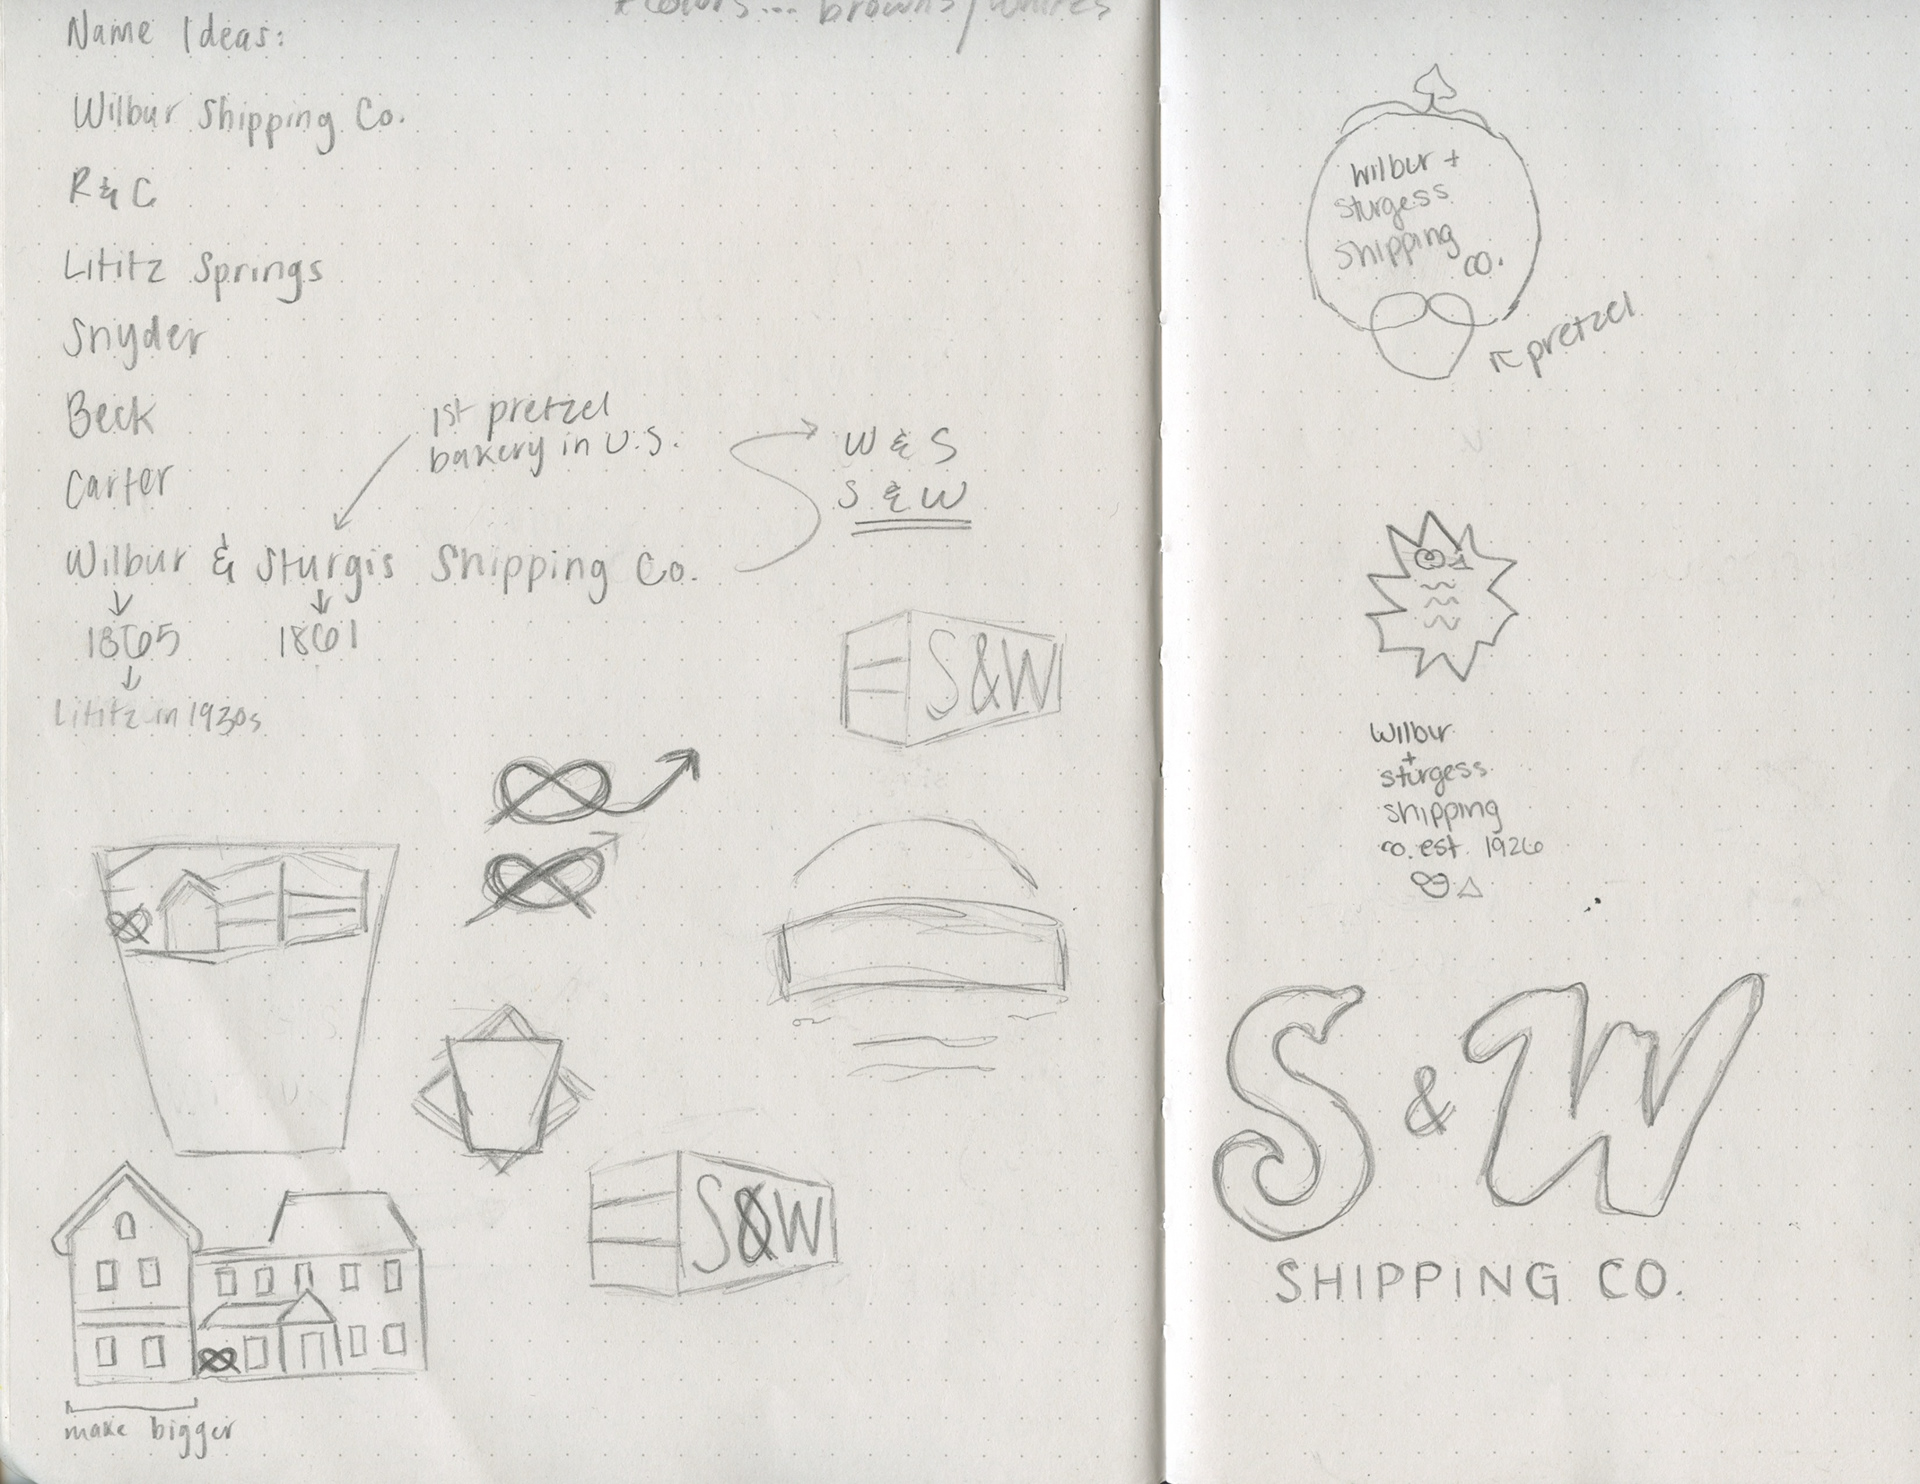 *colors... browns/whites
Name Ideas:
Wilbur Shipping Co.
R & C
Lititz Springs
Snyder
Beck
Carter
1st pretzel
bakery in U.S.
W & S
S & W
Wilbur & Sturgis Shipping Co.
1865 1861
Lititz in 1930s
S&W
S&W
make bigger
Wilbur +
Sturgess
Shipping
co.
pretzel
Wilbur
+
sturgess
shipping
co. est. 1926
S & W
SHIPPING CO.